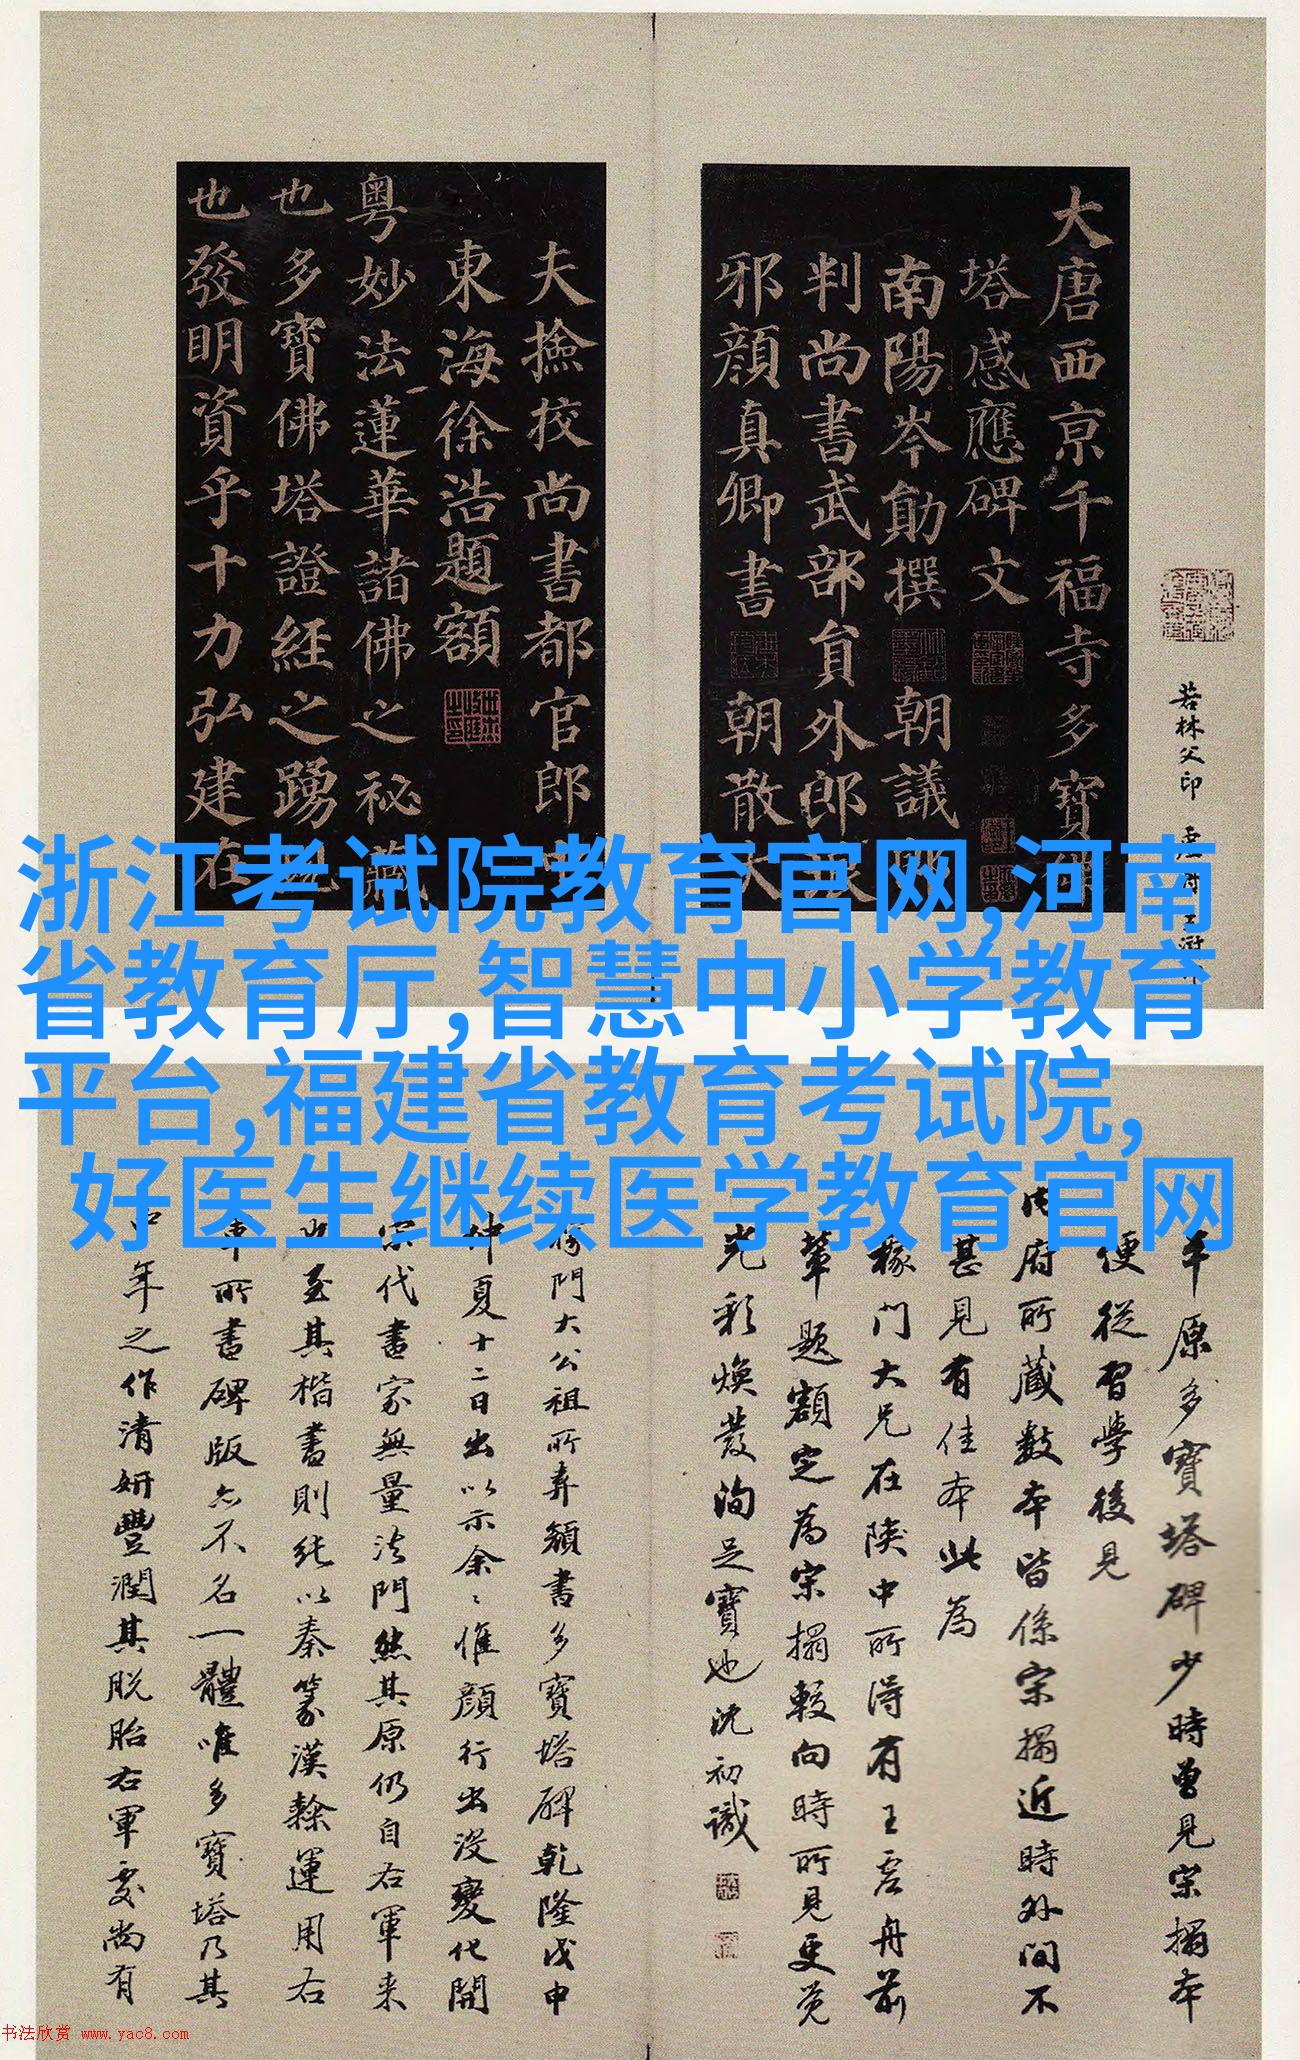 大唐西京千福寺多寶佛
塔感應碑文
南陽岑勛撰 朝議郎
判尚書武部員外郎
邪顏真卿書 朝散大
夫撿挍尚書都官郎
東海徐浩題額
粵妙法蓮華諸佛之祕藏
也多寶佛塔證經之踴現
也發明資乎十力弘建在
若林父印
浙江考试院教育官网,河南
省教育厅,智慧中小学教育
平台,福建省教育考试院,
好医生继续医学教育官网
平原多寶塔碑少時曾見宋搨本
便從習學後見
内府所藏數本皆係宋搨近時外間不
甚見有佳本此為
稼門大兄在陕中所得有王虛舟前
輩題額定為宋搨較向時所見更覺
光彩煥發洵足寶也沈初識
稼門大公祖所弆顏書多寶塔碑乾隆戊申
仲夏十二日出以示余〻惟顏行出没變化開
宋代書家無量法門然其原仍自右軍来
此至其楷書則純以秦篆漢隸運用右
軍所書碑版亦不名一體唯多寶塔乃其
中年之作清妍豐潤其脱胎右軍處尚有
书法欣赏 www.yac8.com